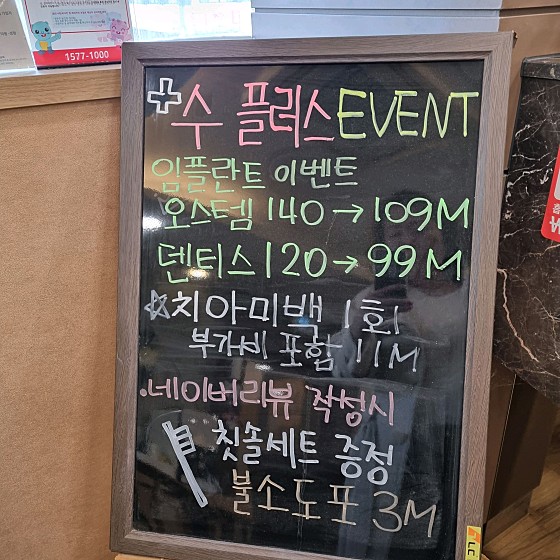 1577-1000
수 플러스 EVENT
임플란트 이벤트
오스템 140→109M
덴티스 120→99M
☆치아미백 1회
부가비 포함 11M
.네이버리뷰 작성시
칫솔세트 증정
불소도포 3M
LC